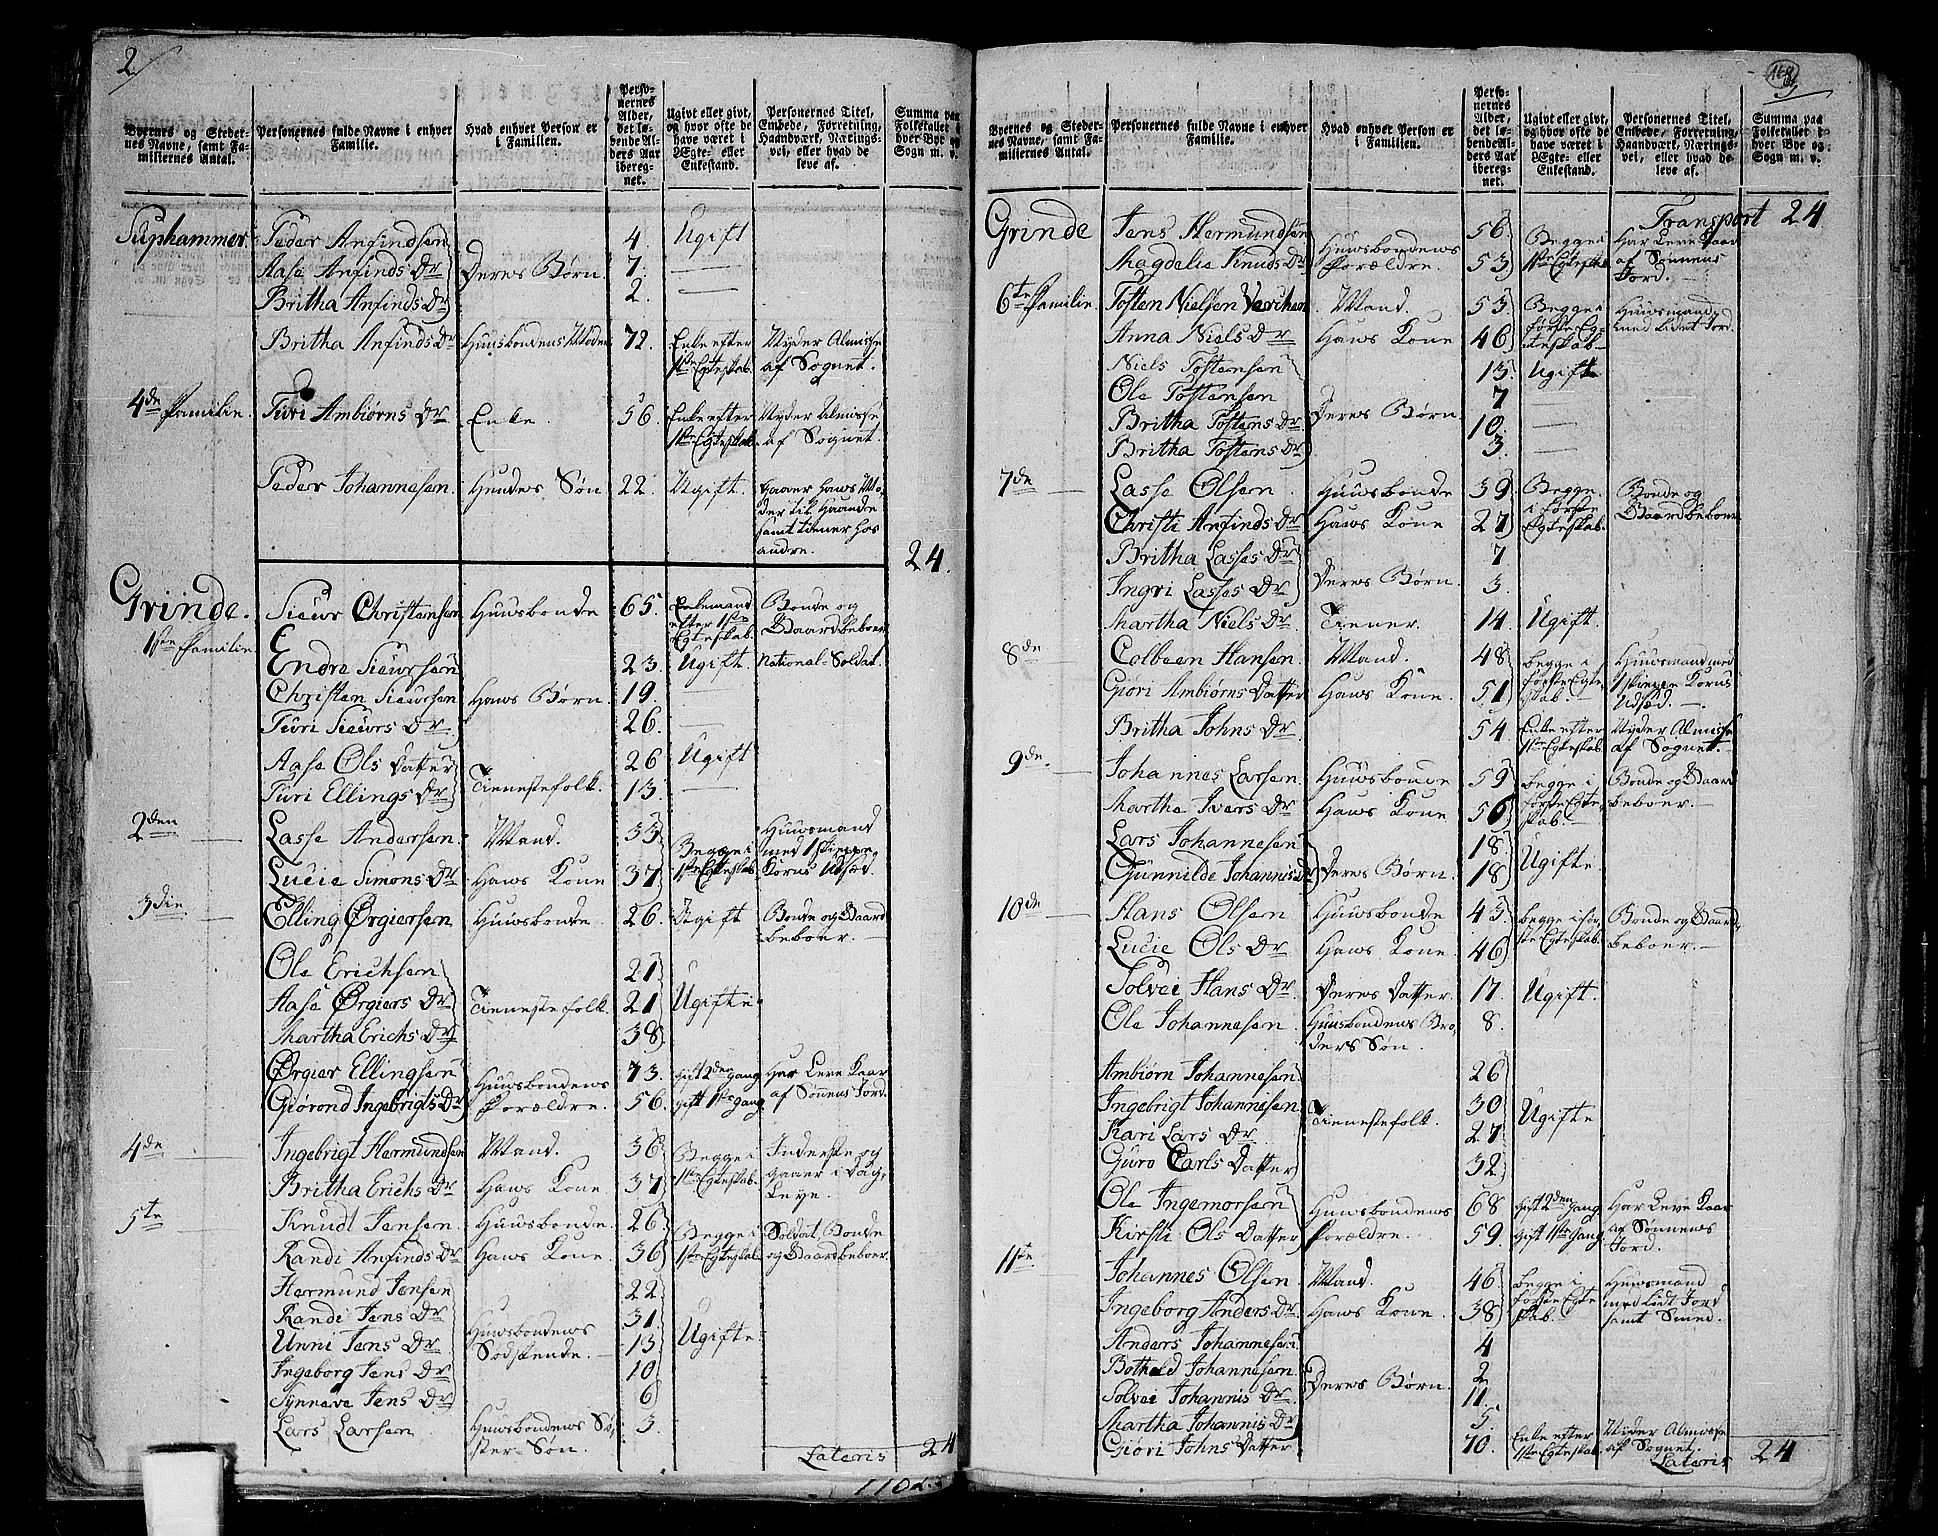 2/
Byernes og Steder-
nes Navne, samt Fa-
miliernes Antal.
Personernes fulde Navne i enhver
Familie.
Hvad enhver Person er
i Familien.
Perso-
nernes
Alder,
det lø-
bende Al-
ders Aar
iberegnet.
Ugivt eller givt,
og hvor ofte de
have været i
Egte- eller
Enkestand.
Personernes Titel,
Embede, Forretning,
Haandværk, Nærings-
vei, eller hvad de
leve af.
Summa paa
Folketallet i
hver Bye og
Sogn m. v.
Suphammer. Peder Anfindsen 4. Ugift
Aase Anfinds Dr Deres Børn. 7. —
Britha Anfinds Dr 2. —
Britha Anfinds Dr Huusbondens Moder 72. Enke efter 1ste Egteskab. Nyder Almisse af Sognet.
4de Familie. Turi Ambiørns Dr Enke. 56 Enke efter 1ste Egteskab. Nyder Almisse af Sognet.
Peder Johannesen. Hendes Søn 22. Ugift. gaaer hans Moder til Haande samt tiener hos andre.
24.
Grinde.
1ste Familie Sieur Christensen Huusbonde 65. Enkemand efter 1ste Egteskab. Bonde og Gaardbeboer
Endre Sieursen 23. Ugift. National-Soldat.
Christen Sieursen Hans Børn. 19. —
Turi Sieurs Dr 26. —
Aase Ols Datter 26 Ugift
Turi Ellings Dr Tienestefolk. 13. —
2den — Lasse Andersen Mand. 33 Begge i 1ste Egteskab Huusmand med 1 Skieppe Korns Udsæd.
Lucie Simons Dr Hans Kone 37
3die — Elling Ørgiersen Huusbonde. 26. Ugift Bonde og Gaardbeboer. —
Ole Erichsen 21
Aase Ørgiers Dr Tienestefolk. 21 Ugifte
Martha Erichs Dr 38
Ørgier Ellingsen Huusbondens Forældre. 73. gift 2den gang Har Leve Kaar af Sønnens Jord.
Giørond Ingebrigts Dr 56. gift 1ste gang
4de — Ingebrigt Hermundsen Mand. 36 Begge i 1ste Egteskab. Inderste og gaaer i Dag-Leye.
Britha Erichs Dr Hans Kone. 37
5te — Knudt Jensen. Huusbonde. 26. Begge i 1ste Egteskab Soldat, Bonde og Gaardbeboer.
Randi Anfinds Dr Hans Kone. 36
Hermund Jensen 22
Randi Jens Dr Huusbondens Sødskende. 31.
Unni Jens Dr 13 Ugifte
Ingeborg Jens Dr 10
Synneve Jens Dr 6
Lars Larsen Huusbondens Søster-Søn. 3.
Lateris 24
Byernes og Steder-
nes Navne, samt Fa-
miliernes Antal.
Personernes fulde Navne i enhver
Familie.
Hvad enhver Person er
i Familien.
Perso-
nernes
Alder,
det lø-
bende Al-
ders Aar
iberegnet.
Ugivt eller givt,
og hvor ofte de
have været i
Egte- eller
Enkestand.
Personernes Titel,
Embede, Forretning,
Haandværk, Nærings-
vei, eller hvad de
leve af.
Summa paa
Folketallet i
hver Bye og
Sogn m. v.
Transport 24
Grinde Jens Hermundsen Huusbondens Forældre. 56. Begge i 1ste Egteskab Har Leve Kaar af Sønnens Jord. —
Magdelie Knuds Dr 53
6te Familie. Tosten Nielsen Mand. 53 Begge i første Egteskab — Huusmand med Lidet Jord.
Anna Niels Dr Hans Kone 46
Niels Tostensen 13. Ugift
Ole Tostensen Deres Børn. 7 —
Britha Tostens Dr 10. —
Britha Tostens Dr 3. —
7de — Lasse Olsen Huusbonde 39. Begge i første Egteskab. Bonde og Gaardbeboer
Christi Anfinds Dr Hans Kone 27
Britha Lasses Dr 7
Ingri Lasses Dr Deres Børn. 3.
Martha Niels Dr. Tiener. 14. Ugift.
8de — Colbeen Hansen Mand. 48 begge i første Egteskab. — Huusmand med 1 Skieppe Korns Udsæd. —
Giøri Ambiørns Datter Hans Kone. 51
Britha Johns Dr 54. Enke efter 1ste Egteskab. Nyder Almisse af Sognet
9de. — Johannes Larsen Huusbonde 59 begge i første Egteskab. — Bonde og Gaardbeboer. —
Martha Ivers Dr Hans Kone 56
Lars Johannesen 18
Gunnilde Johannis Dr Deres Børn. 18 Ugifte
10de — Hans Olsen Huusbonde 43. begge i første Egteskab. Bonde og Gaardbeboer. —
Lucie Ols Dr Hans Kone. 46
Solvei Hans Dr. Deres Datter. 17. Ugift.
Ole Johannesen Huusbondens Broders Søn. 8.
Ambiørn Johannesen 26
Ingebrigt Johannesen Tienestefolk. 30 Ugifte
Kari Lars Dr 27
Guro Carls Datter 32
Ole Ingemorsen Huusbondens Forældre. 68 gift 2den gang Har Leve Kaar af Sønnens Jord.
Kirsti Ols Datter 59. gift 1ste Gang.
11te — Johannes Olsen Mand. 46. begge i første Egteskab. Huusmand med Lidt Jord samt Smed.
Ingeborg Anders Dr Hans Kone. 38
Anders Johannesen 4
Botholf Johannesen 2
Solvei Johannis Dr Deres Børn. 11.
Martha Johannis Dr 5
Giøri Johns Datter 70. Enke efter 1ste Egteskab. Nyder Almisse af Sognet.
Lateris 24